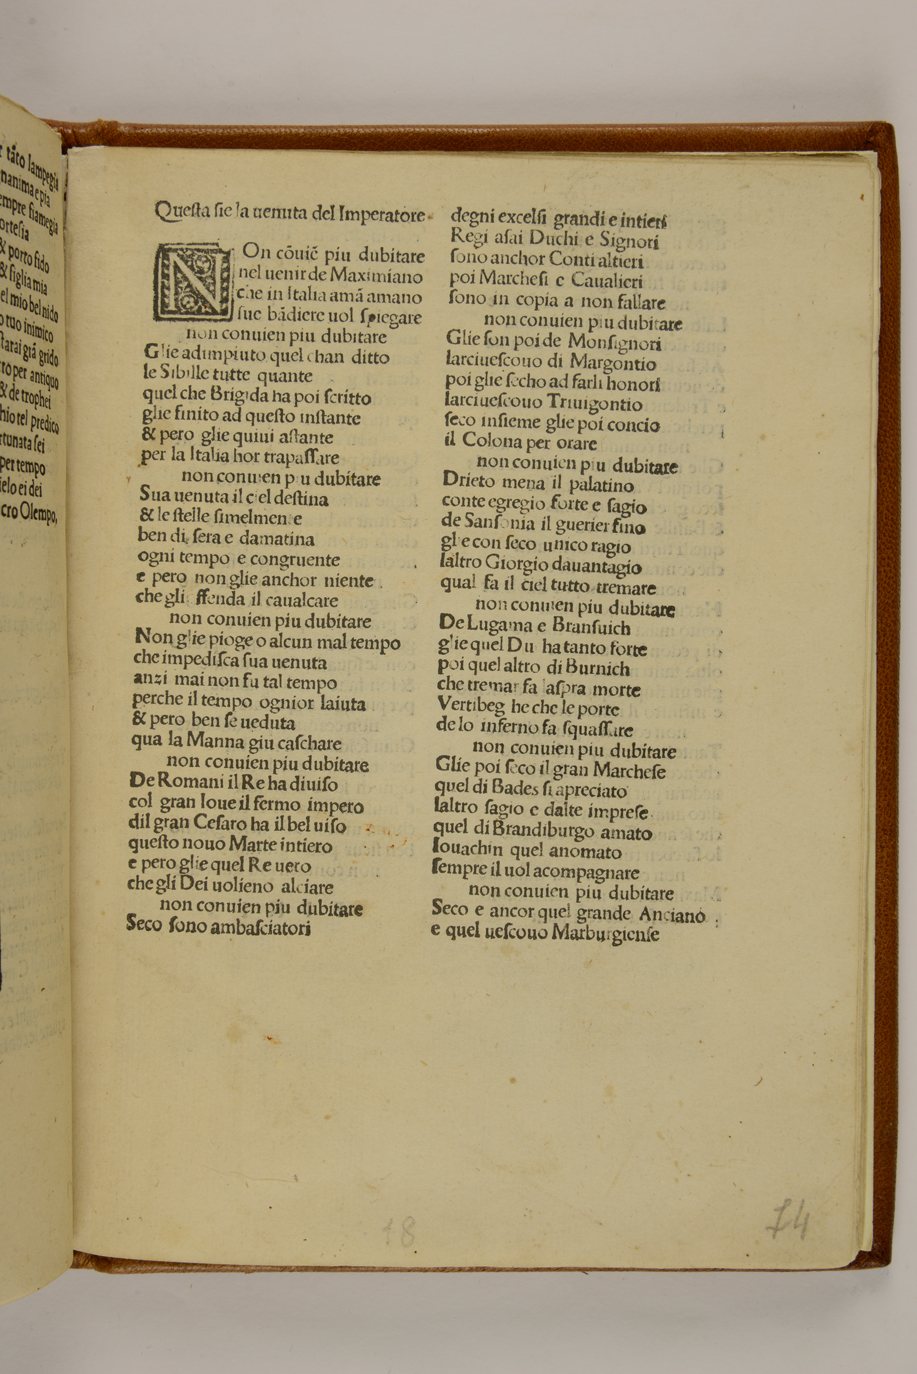 t tãto lampegia
nanima e pia
empre fiamegia
ortesia
& porto fido
& figlia mia
el mio bel nido
o tuo inimico
farai grã grido
ro per antiquo
& de trophei
hio tel predico
rtunata sei
per tempo
ielo ei dei
cro Olempo,
Queſta ſie la uenuta del Imperatore.
NOn cõuiẽ piu dubitare
nel uenir de Maximiano
che in Italia amã amano
ſue bãdiere uol ſpiegare
non conuien piu dubitare
Glie adimpiuto quel chan ditto
le Sibille tutte quante
quel che Brigida ha poi ſcritto
glie finito ad queſto inſtante
& pero glie quiui aſtante
per la Italia hor trapaſſare
non conuien piu dubitare
Sua uenuta il ciel deſtina
& le ſtelle ſimelmente
ben di ſera e damatina
ogni tempo e congruente
e pero non glie anchor niente
che gli ffenda il caualcare
non conuien piu dubitare
Non glie pioge o alcun mal tempo
che impediſca ſua uenuta
anzi mai non fu tal tempo
perche il tempo ognior laiuta
& pero ben ſe ueduta
qua la Manna giu caſchare
non conuien piu dubitare
De Romani il Re ha diuiſo
col gran Ioue il fermo impero
dil gran Ceſaro ha il bel uiſo
queſto nouo Marte intiero
e pero glie quel Re uero
che gli Dei uolieno alciare
non conuien piu dubitare
Seco ſono ambaſciatori
degni excelſi grandi e intieri
Regi aſai Duchi e Signori
ſono anchor Conti altieri
poi Marcheſi e Caualieri
ſono in copia a non fallare
non conuien piu dubitare
Glie ſon poi de Monſignori
larciueſcouo di Margontio
poi glie ſecho ad farli honori
larciueſcouo Triuigontio
ſeco inſieme glie poi concio
il Colona per orare
non conuien piu dubitare
Drieto mena il palatino
conte egregio forte e ſagio
de Sanſonia il guerier fino
gl e con ſeco unico ragio
laltro Giorgio dauantagio
qual fa il ciel tutto tremare
non conuien piu dubitare
De Lugama e Branſuich
glie quel Du ha tanto forte
poi quel altro di Burnich
che tremar fa laſpra morte
Vertibeg he che le porte
de lo inferno fa ſquaſſare
non conuien piu dubitare
Glie poi ſeco il gran Marcheſe
quel di Bades ſi apreciato
laltro ſagio e dalte impreſe
quel di Brandiburgo amato
Iouachin quel anomato
ſempre il uol acompagnare
non conuien piu dubitare
Seco e ancor quel grande Anciano
e quel ueſcouo Marburgienſe
18
74